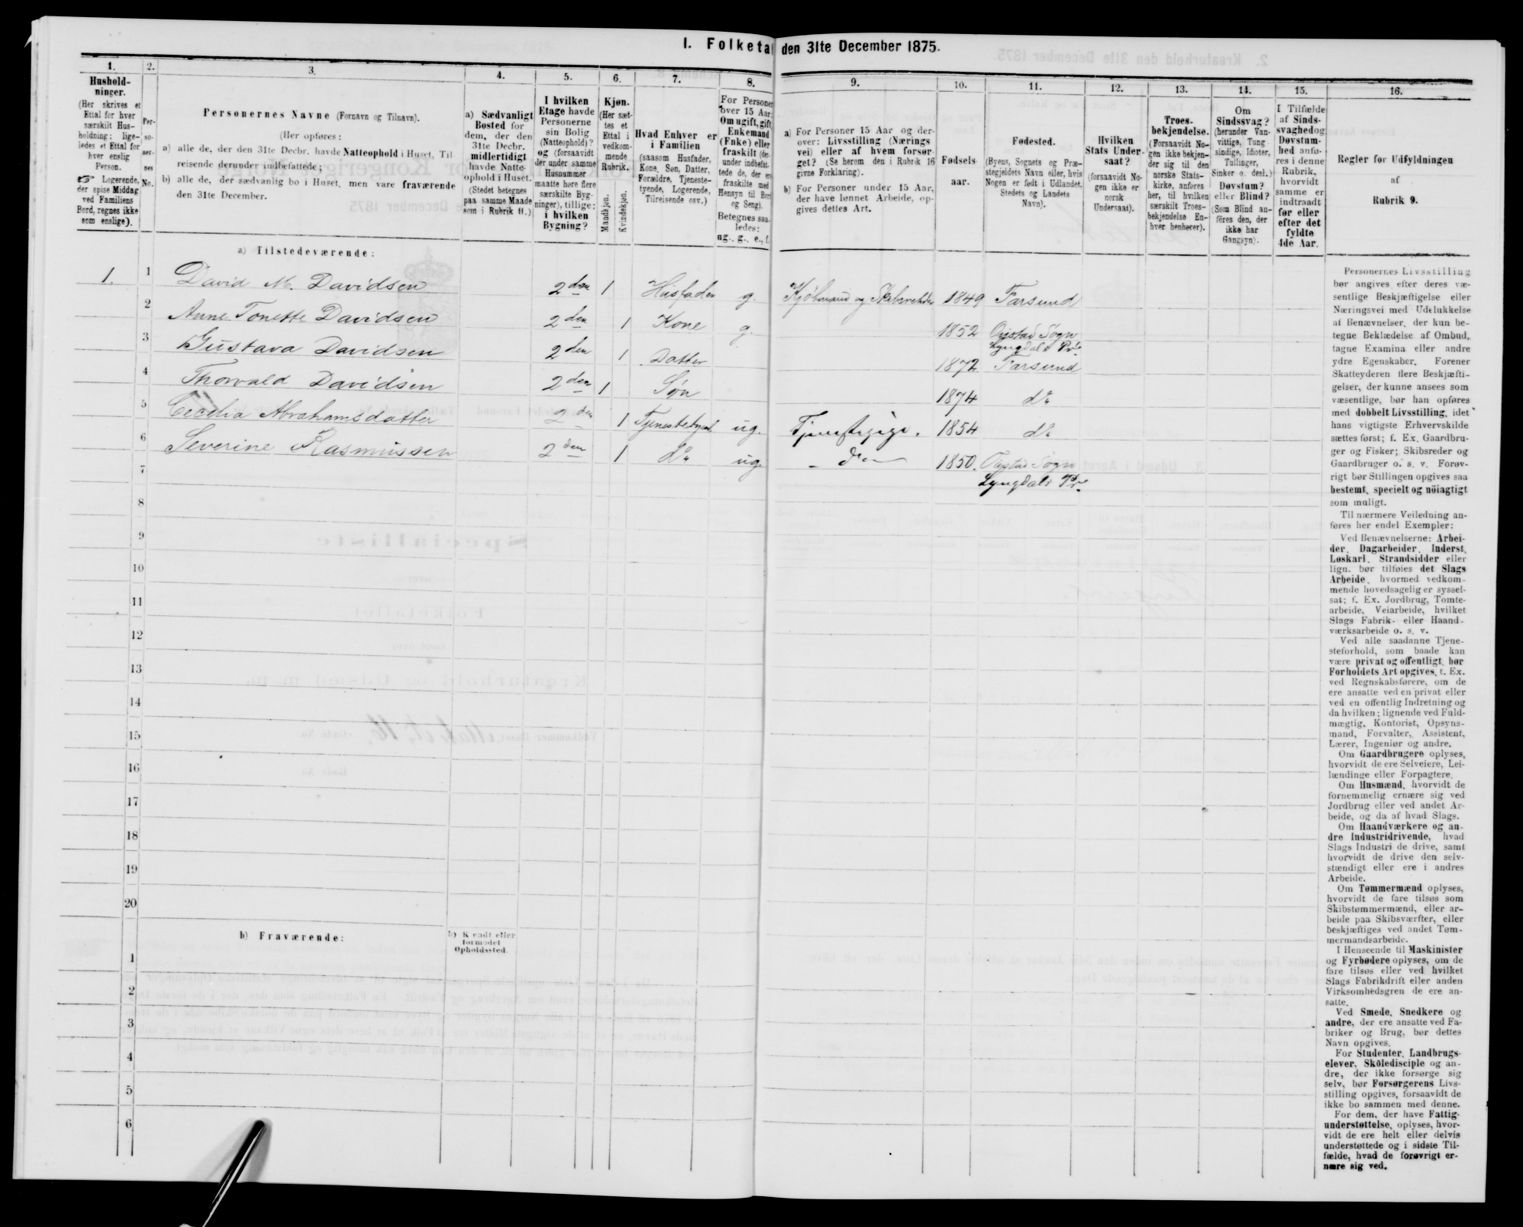 1. Folketal den 31te December 1875.
1.
Hushold-
ninger.
(Her skrives et
Ettal for hver
særskilt Hus-
holdning; lige-
ledes et Ettal for
hver enslig
Person.
☞ Logerende,
der spise Middag
ved Familiens
Bord, regnes ikke
som enslige).
2.
Per-
so-
ner-
nes
No.
3.
Personernes Navne (Fornavn og Tilnavn).
(Her opføres:
a) alle de, der den 31te Decbr. havde Natteophold i Huset, Til
reisende derunder indbefattede;
b) alle de, der sædvanlig bo i Huset, men vare fraværende
den 31te December.
4.
a) Sædvanligt
Bosted for
dem, der den
31te Decbr.
midlertidigt
havde Natte-
ophold i Huset.
(Stedet betegnes
paa samme Maade
som i Rubrik 11.)
5.
I hvilken
Etage havde
Personerne
sin Bolig
(Natteophold)?
og (forsaavidt
der under samme
Husnummer
maatte høre flere
særskilte Byg-
ninger), tillige:
i hvilken
Bygning?
6.
Kjøn.
(Her sæt-
tes et
Ettal i
vedkom-
mende
Rubrik.
Mandkjøn.
Kvindekjøn.
7.
Hvad Enhver er
i Familien
(saasom Husfader,
Kone, Søn, Datter,
Forældre, Tjeneste-
tyende, Logerende,
Tilreisende osv.)
8.
For Personer
over 15 Aar,
Om ugift, gift,
Enkemand
(Enke) eller
fraskilt (der-
under indbefat-
tede de, der ere
fraskilte med
Hensyn til Bord
og Seng).
Betegnes saa-
ledes:
ug., g., e., f.
9.
a) For Personer 15 Aar og der-
over: Livsstilling (Nærings
vei) eller af hvem forsør-
get? (Se herom den i Rubrik 16
givne Forklaring).
b) For Personer under 15 Aar,
der have lønnet Arbeide, op-
gives dettes Art.
10.
Fødsels-
aar.
11.
Fødested.
(Byens, Sognets og Præ-
stegjeldets Navn eller, hvis
Nogen er født i Udlandet,
Stedets og Landets
Navn).
12.
Hvilken
Stats Under-
saat?
(forsaavidt No-
gen ikke er
norsk
Undersaat).
13.
Troes-
bekjendelse.
(Forsaavidt No-
gen ikke bekjen-
der sig til den
norske Stats-
kirke, anføres
her, til hvilken
særskilt Troes-
bekjendelse En-
hver henhører).
14.
Om
Sindssvag?
(herunder Van-
vittige, Tung
sindige, Idioter,
Tullinger,
Sinker o. desl.)
Døvstum?
eller Blind?
(Som Blind an-
føres den, der
ikke har
Gangsyn).
15.
I Tilfælde
af Sinds-
svaghed og
Døvstum-
hed anfø-
res i denne
Rubrik,
hvorvidt
samme er
indtraadt
før eller
efter det
fyldte
4de Aar.
16.
Regler for Udfyldningen
af
Rubrik 9.
a) Tilstedeværende:
1. 1 David M. Davidsen 2den 1 Husfader g. Kjøbmand og Skibsrheder 1849 Farsund
2 Anne Tonette Davidsen 2den 1 Kone g. 1852 Ougstad Sogn
Lyngdals Pr.
3 Gustava Davidsen 2den 1 Datter 1872 Farsund
4 Thorvald Davidsen 2den 1 Søn 1874 do
5 Cecelia Abrahamsdatter 2den 1 Tjenestetyende ug. Tjenestepige. 1854 do
6 Severine Rasmussen 2den 1 do ug. - do - 1850. Ougstad Sogn
Lyngdals Pr.
7
8
9
10
11
12
13
14
15
16
17
18
19
20
b) Fraværende:
b) Kjendt eller
formodet
Opholdssted.
1
2
3
4
5
6
Personernes Livsstilling
bør angives efter deres væ-
sentlige Beskjæftigelse eller
Næringsvei med Udelukkelse
af Benævnelser, der kun be-
tegne Beklædelse af Ombud,
tagne Examina eller andre
ydre Egenskaber. Forener
Skatteyderen flere Beskjæfti-
gelser, der kunne ansees som
væsentlige, bør han opføres
med dobbelt Livsstilling, idet
hans vigtigste Erhvervskilde
sættes først; f. Ex. Gaardbru-
ger og Fisker; Skibsreder og
Gaardbruger o. s. v. Forøv-
rigt bør Stillingen opgives saa
bestemt, specielt og nöiagtigt
som muligt.
Til nærmere Veiledning an-
føres her endel Exempler:
Ved Benævnelserne: Arbei-
der, Dagarbeider, Inderst,
Løskarl, Strandsidder eller
lign. bør tilføies det Slags
Arbeide, hvormed vedkom-
mende hovedsagelig er syssel-
sat; f. Ex. Jordbrug, Tomte-
arbeide, Veiarbeide, hvilket
Slags Fabrik- eller Haand-
værksarbeide o. s. v.
Ved alle saadanne Tjene-
steforhold, som baade kan
være privat og offentligt, bør
Forholdets Art opgives, f. Ex.
ved Regnskabsførere, om de
ere ansatte ved en privat eller
ved en offentlig Indretning og
da hvilken; lignende ved Fuld-
mægtig, Kontorist, Opsyns-
mand, Forvalter, Assistent,
Lærer, Ingeniør og andre.
Om Gaardbrugere oplyses,
hvorvidt de ere Selveiere, Lei-
lændinge eller Forpagtere.
Om Husmænd, hvorvidt de
fornemmelig ernære sig ved
Jordbrug eller ved andet Ar-
beide, og da af hvad Slags.
Om Haandværkere og an-
dre Industridrivende, hvad
Slags Industri de drive, samt
hvorvidt de drive den selv-
stændigt eller ere i andres
Arbeide.
Om Tømmermænd oplyses,
hvorvidt de fare tilsøs som
Skibstømmermænd, eller ar-
beide paa Skibsværfter, eller
beskjæftiges ved andet Tøm-
mermandsarbeide.
I Henseende til Maskinister
og Fyrbødere oplyses, om de
fare tilsøs eller ved hvilket
Slags Fabrikdrift eller anden
Virksomhedsgren de ere an-
satte.
Ved Smede, Snedkere og
andre, der ere ansatte ved Fa-
briker og Brug, bør dettes
Navn opgives.
For Studenter, Landbrugs-
elever, Skoledisciple og an-
dre, der ikke forsørge sig
selv, bør Forsørgerens Livs-
stilling opgives, forsaavidt de
ikke bo sammen med denne.
For dem, der have Fattig-
understøttelse, oplyses, hvor-
vidt de ere helt eller delvis
understøttede og i sidste Til-
fælde, hvad de forøvrigt er-
nære sig ved.